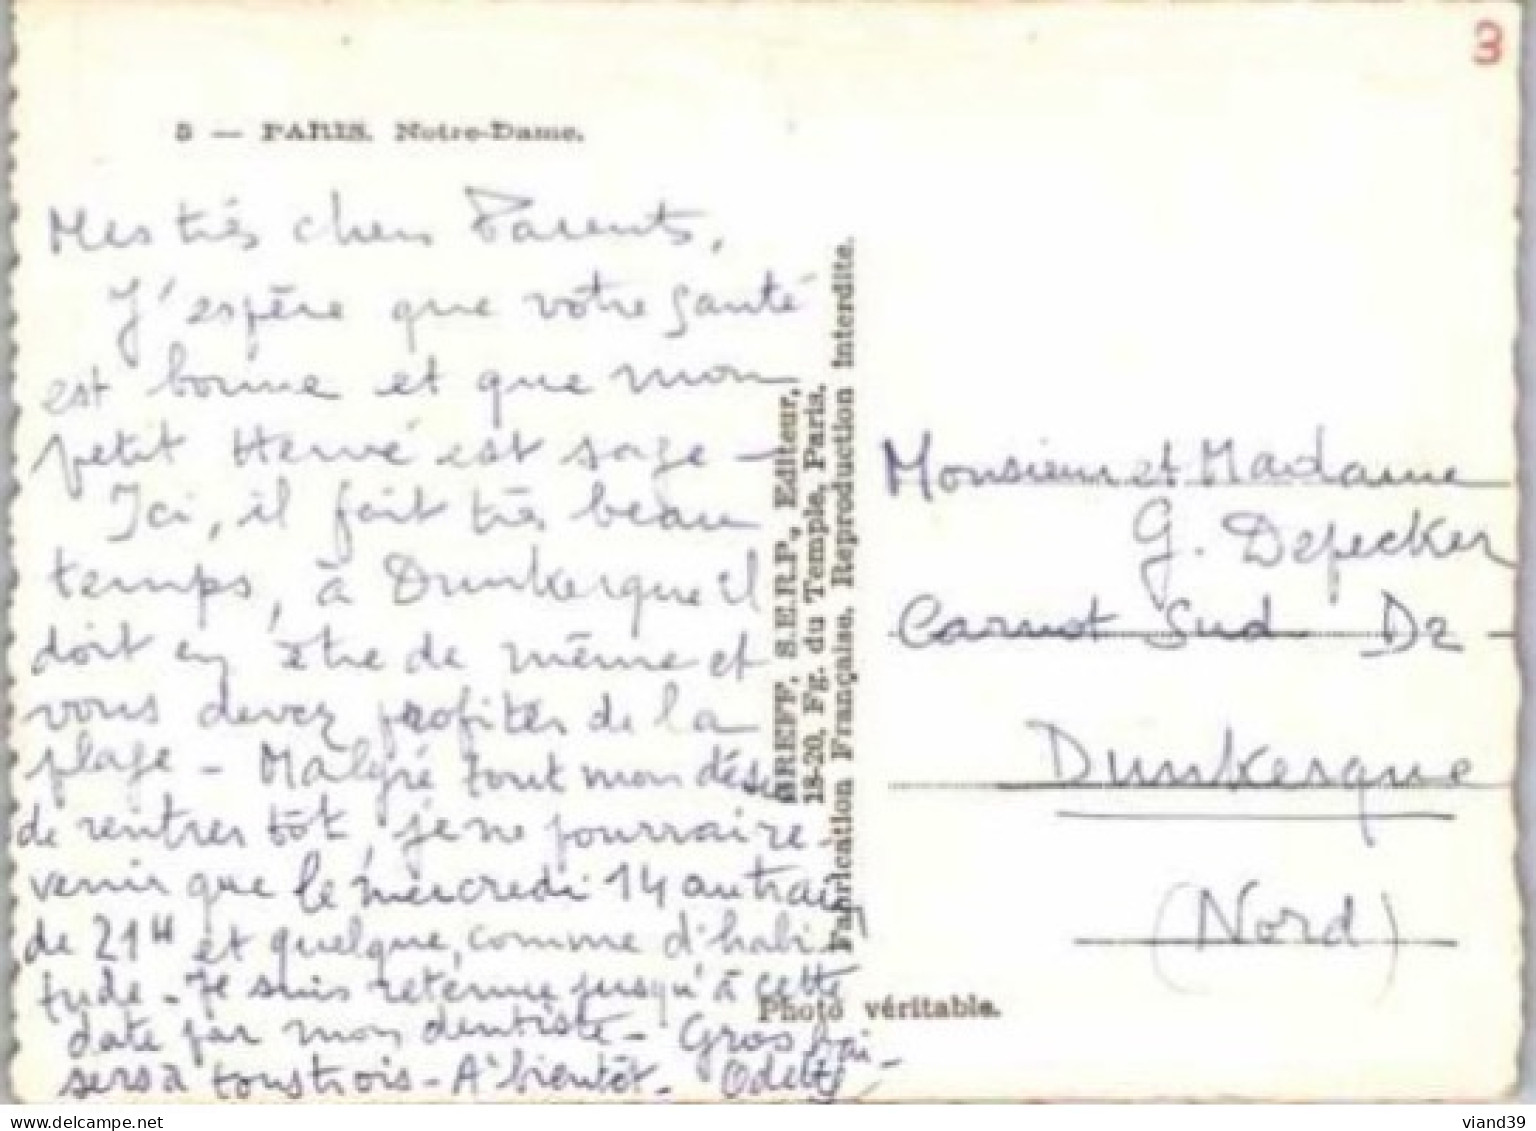 3
5 — PARIS. Notre-Dame.
Mes très chers Parents,
J'espère que votre santé
est bonne et que mon
petit Hervé est sage –
Ici, il fait très beau
temps, à Dunkerque il
doit en être de même et
vous devez profiter de la
plage – Malgré tout mon dési
de rentrer tôt, je ne pourrai re-
venir que le mercredi 14 au train
de 21H et quelque, comme d'habi-
tude – Je suis retenue jusqu'à cette
date par mon dentiste – Gros bai-
sers à tous trois – A bientôt – Odette
GREFF, S.E.R.P., Editeur,
18-20, Fg. du Temple, Paris.
Fabrication Française. Reproduction Interdite.
Photo véritable.
Monsieur et Madame
G. Depecker
Carnot Sud D2
Dunkerque
(Nord)
viand39